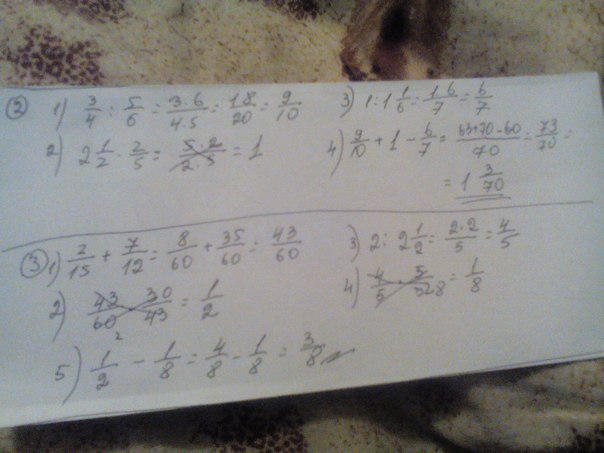 ② 1) 3/4 : 5/6 = 3·6/4·5 = 18/20 = 9/10
2) 2 1/2 · 2/5 = 5·2/2·5 = 1
3) 1 : 1 1/6 = 1·6/7 = 6/7
4) 9/10 + 1 - 6/7 = 63+70-60/70 = 73/70 =
= 1 3/70
③ 1) 2/15 + 7/12 = 8/60 + 35/60 = 43/60
2) 43/60 · 30/43 = 1/2
2
3) 2 : 2 1/2 = 2·2/5 = 4/5
4) 4/5 · 5/32 8 = 1/8
5) 1/2 - 1/8 = 4/8 - 1/8 = 3/8